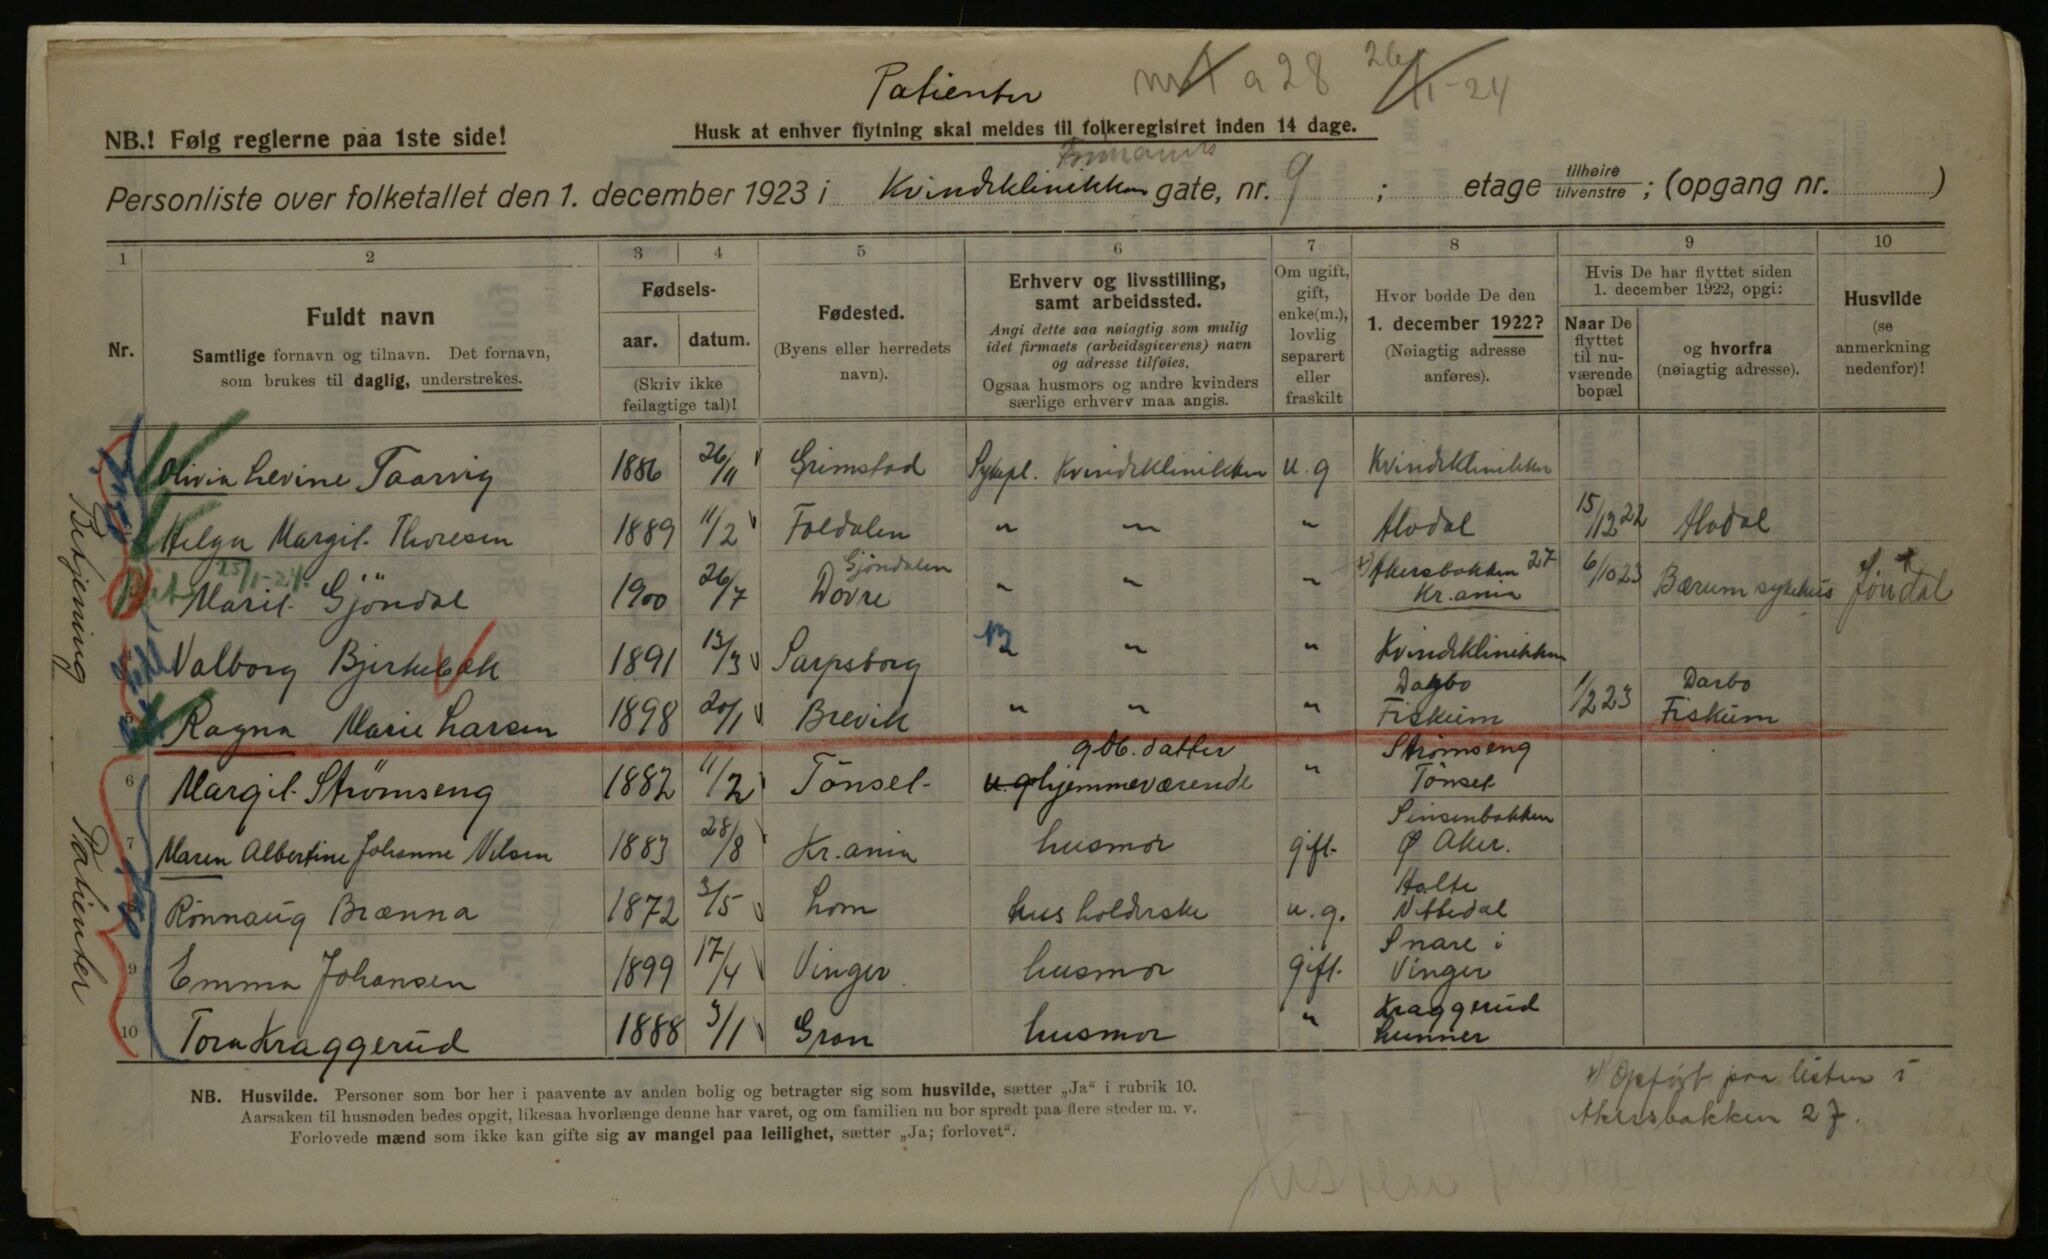 Patienter a 28 26/1-24
NB.! Følg reglerne paa 1ste side!
Husk at enhver flytning skal meldes til folkeregistret inden 14 dage.
Personliste over folketallet den 1. december 1923 i Kvindeklinikken gate, nr. 9 ; etage tilhøire tilvenstre ; (opgang nr. )
1 2 3 4 5 6 7 8 9 10
Nr.
Fuldt navn
Samtlige fornavn og tilnavn. Det fornavn,
som brukes til daglig, understrekes.
Fødsels-
aar. datum.
(Skriv ikke
feilagtige tal)!
Fødested.
(Byens eller herredets
navn).
Erhverv og livsstilling,
samt arbeidssted.
Angi dette saa nøiagtig som mulig
idet firmaets (arbeidsgiverens) navn
og adresse tilføies.
Ogsaa husmors og andre kvinders
særlige erhverv maa angis.
Om ugift,
gift,
enke(m.),
lovlig
separert
eller
fraskilt
Hvor bodde De den
1. december 1922?
(Nøiagtig adresse
anføres).
Hvis De har flyttet siden
1. december 1922, opgi:
Naar De
flyttet
til nu-
værende
bopæl
og hvorfra
(nøiagtig adresse).
Husvilde
(se
anmerkning
nedenfor)!
Betjening
Olivia Levine Taarvig 1886 26/11 Grimstad Sykepl. Kvindeklinikken u. g Kvindeklinikken
Helga Margit Thoresen 1889 11/2 Foldalen " " " Alvdal 15/12 22 Alvdal
25/1-24
Marit Gjöndal 1900 26/7 Gjöndalen Dovre " " " x) Akersbakken 27 Kr.ania 6/10 23 Bærum sykehus Jöndal
4 Valborg Bjerkebæk 1891 13/3 Sarpsborg " " " Kvindeklinikken
5 Ragna Marie Larsen 1898 20/1 Brevik " " " Darbo Fiskum 1/2 23 Darbo Fiskum
Patienter
6 Margit Strömseng 1882 11/2 Tönset gdb. datter hjemmeværende " Strömseng Tönset
7 Maren Albertine Johanne Nilsen 1883 28/8 Kr.ania husmor gift Sinsenbakken Ø Aker.
8 Rönnaug Brænna 1872 3/5 Lom husholderske u. g. Holte Nittedal
9 Emma Johansen 1899 17/4 Vinger husmor gift Snare i Vinger
10 Tora Kraggerud 1888 3/1 Gran husmor " Kraggerud Lunner
NB. Husvilde. Personer som bor her i paavente av anden bolig og betragter sig som husvilde, sætter „Ja“ i rubrik 10.
Aarsaken til husnøden bedes opgit, likesaa hvorlænge denne har varet, og om familien nu bor spredt paa flere steder m. v.
Forlovede mænd som ikke kan gifte sig av mangel paa leilighet, sætter „Ja; forlovet“.
x) Opført paa listen i
Akersbakken 27.